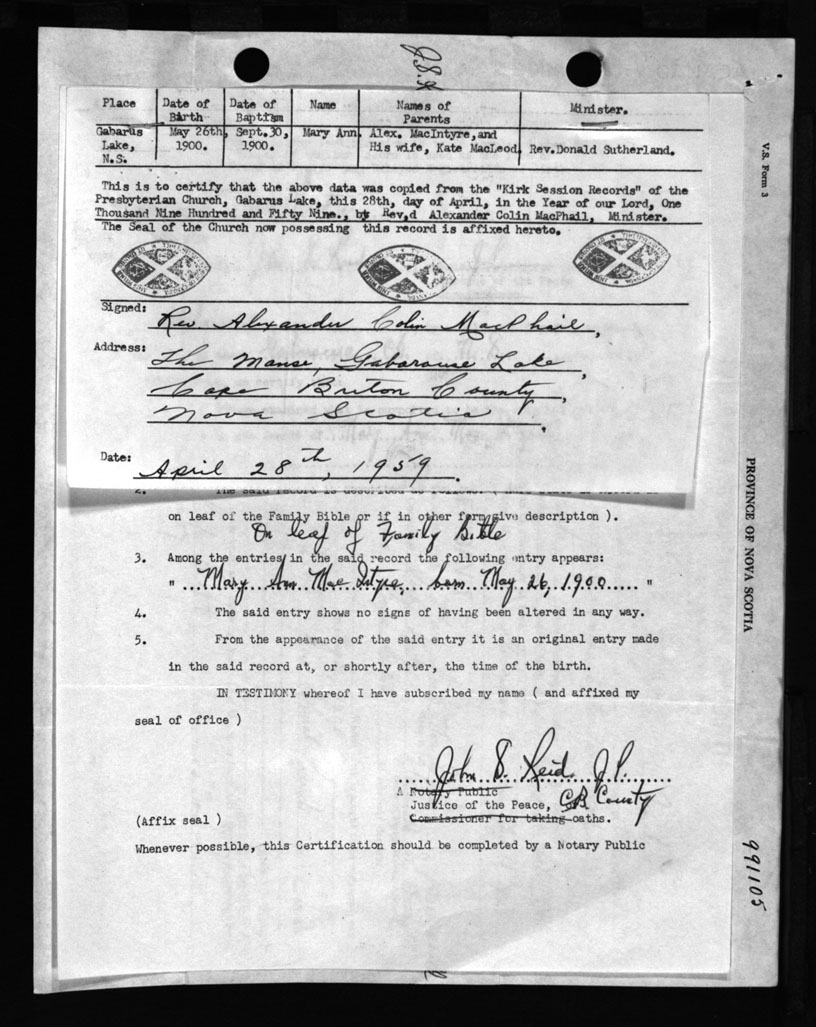 J.S.R
Place Date of Birth Date of Baptism Name Names of Parents Minister.
Gabarus Lake, N.S. May 26th, 1900. Sept.30, 1900. Mary Ann. Alex. MacIntyre,and His wife, Kate MacLeod Rev.Donald Sutherland.
This is to certify that the above data was copied from the "Kirk Session Records" of the
Presbyterian Church, Gabarus Lake, this 28th, day of April, in the Year of our Lord, One
Thousand Nine Hundred and Fifty Nine., by Rev,d Alexander Colin MacPhail, Minister.
The Seal of the Church now possessing this record is affixed hereto.
Signed: Rev. Alexander Colin MacPhail,
Address: The Manse, Gabarouse Lake,
Cape Briton County,
Nova Scotia.
Date: April 28th, 1959.
2. The said record is described as follows: (
on leaf of the Family Bible or if in other form give description ).
On leaf of Family Bible
3. Among the entries in the said record the following entry appears:
" ...Mary Ann Mac Intyre, born May 26, 1900..... "
4. The said entry shows no signs of having been altered in any way.
5. From the appearance of the said entry it is an original entry made
in the said record at, or shortly after, the time of the birth.
IN TESTIMONY whereof I have subscribed my name ( and affixed my
seal of office )
John S. Reid J.P.
A Notary Public
Justice of the Peace, C.B. County
Commissioner for taking oaths.
(Affix seal )
Whenever possible, this Certification should be completed by a Notary Public
V.S. Form 3
PROVINCE OF NOVA SCOTIA
991105